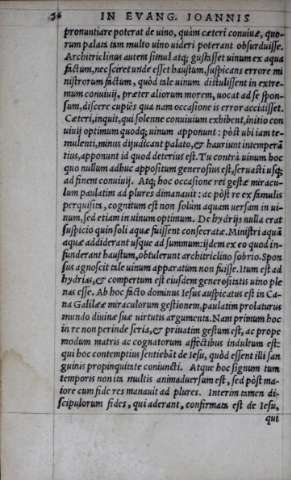 IN EVANG. IOANNIS
pronuntiare poterat de uino, quàm cæteri conuiuæ, quo-
rum palata tum multo uino uideri poterant obsurduisse.
Architriclinus autem simul atq; gustasset uinum ex aqua
factum, nec sciret unde esset haustum, suspicans errore mi
nistrorum factum, quòd tale uinum distulissent in extre-
mum conuiuij, præter aliorum morem, uocat ad se spon-
sum, discere cupiēs qua nam occasione is error accidisset.
Cæteri, inquit, qui solenne conuiuium exhibent, initio con
uiuij optimum quodq; uinum apponunt: pòst ubi iam te-
mulenti, minus dijudicant palato, & hauriunt intemperā
tius, apponunt id quod deterius est. Tu contrà uinum hoc
quo nullum adhuc appositum generosius est, seruasti usq;
ad finem conuiuij. Atq; hoc occasione rei gestæ miracu-
lum paulatim ad plures dimanauit: ac pòst re ex famulis
perquisita, cognitum est non solùm aquam uersam in ui-
num, sed etiam in uinum optimum. De hydrijs nulla erat
suspicio quin soli aquæ fuissent consecratæ. Ministri aquā
aquæ addiderant usque ad summum: ijdem ex eo quod in-
funderant haustum, obtulerunt architriclino sobrio. Spon
sus agnoscit tale uinum apparatum non fuisse. Itum est ad
hydrias, & compertum est eiusdem generositatis uino ple
nas esse. Ab hoc facto dominus Iesus auspicatus est in Ca-
na Galilææ miraculorum gestionem, paulatim prolaturus
mundo diuinæ suæ uirtutis argumenta. Nam primum hoc
in re non perinde seria, & priuatim gestum est, ac prope
modum matris ac cognatorum affectibus indultum est:
qui hoc contemptius sentiebāt de Iesu, quòd essent illi san
guinis propinquitate coniuncti. Atque hoc signum tum
temporis non ita multis animaduersum est, sed pòst ma-
iore cum fide res manauit ad plures. Interim tamen di-
scipulorum fides, qui aderant, confirmata est de Iesu,
qui